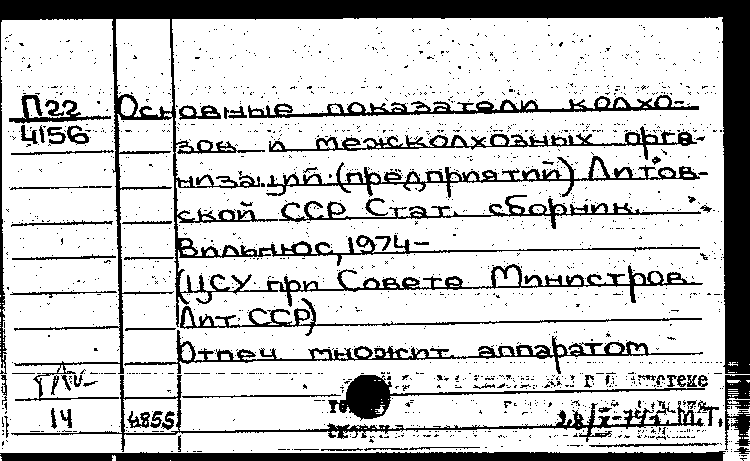 П22 Основные показатели колхо-
4156 зов и межколхозных орга-
низаций (предприятий) Литов-
ской ССР Стат. сборник.
Вильнюс, 1974-
(ЦСУ при Совете Министров
Лит. ССР)
Отпеч множит. аппаратом
14 4855 28/X-74г. М.Т.